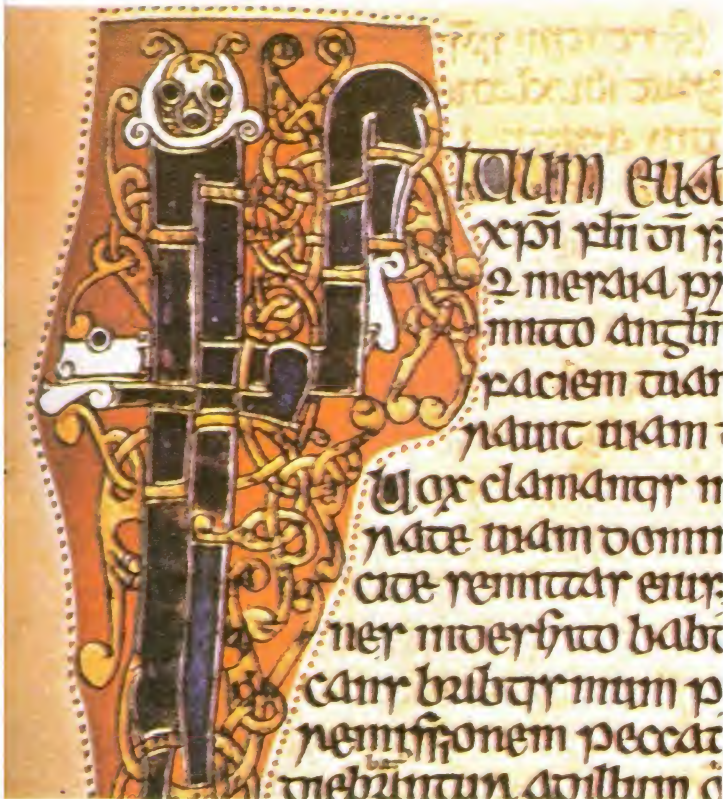 INITIUM EUA
xp̄i filii dī s
in esaia pr
mitto angelum
faciem tuam
rauit uiam t
Uox clamantis in
rate uiam domin
cite semitas eius
nes in deserto babt
cans babtismum p
remissionem peccat
diebantur ad illum o